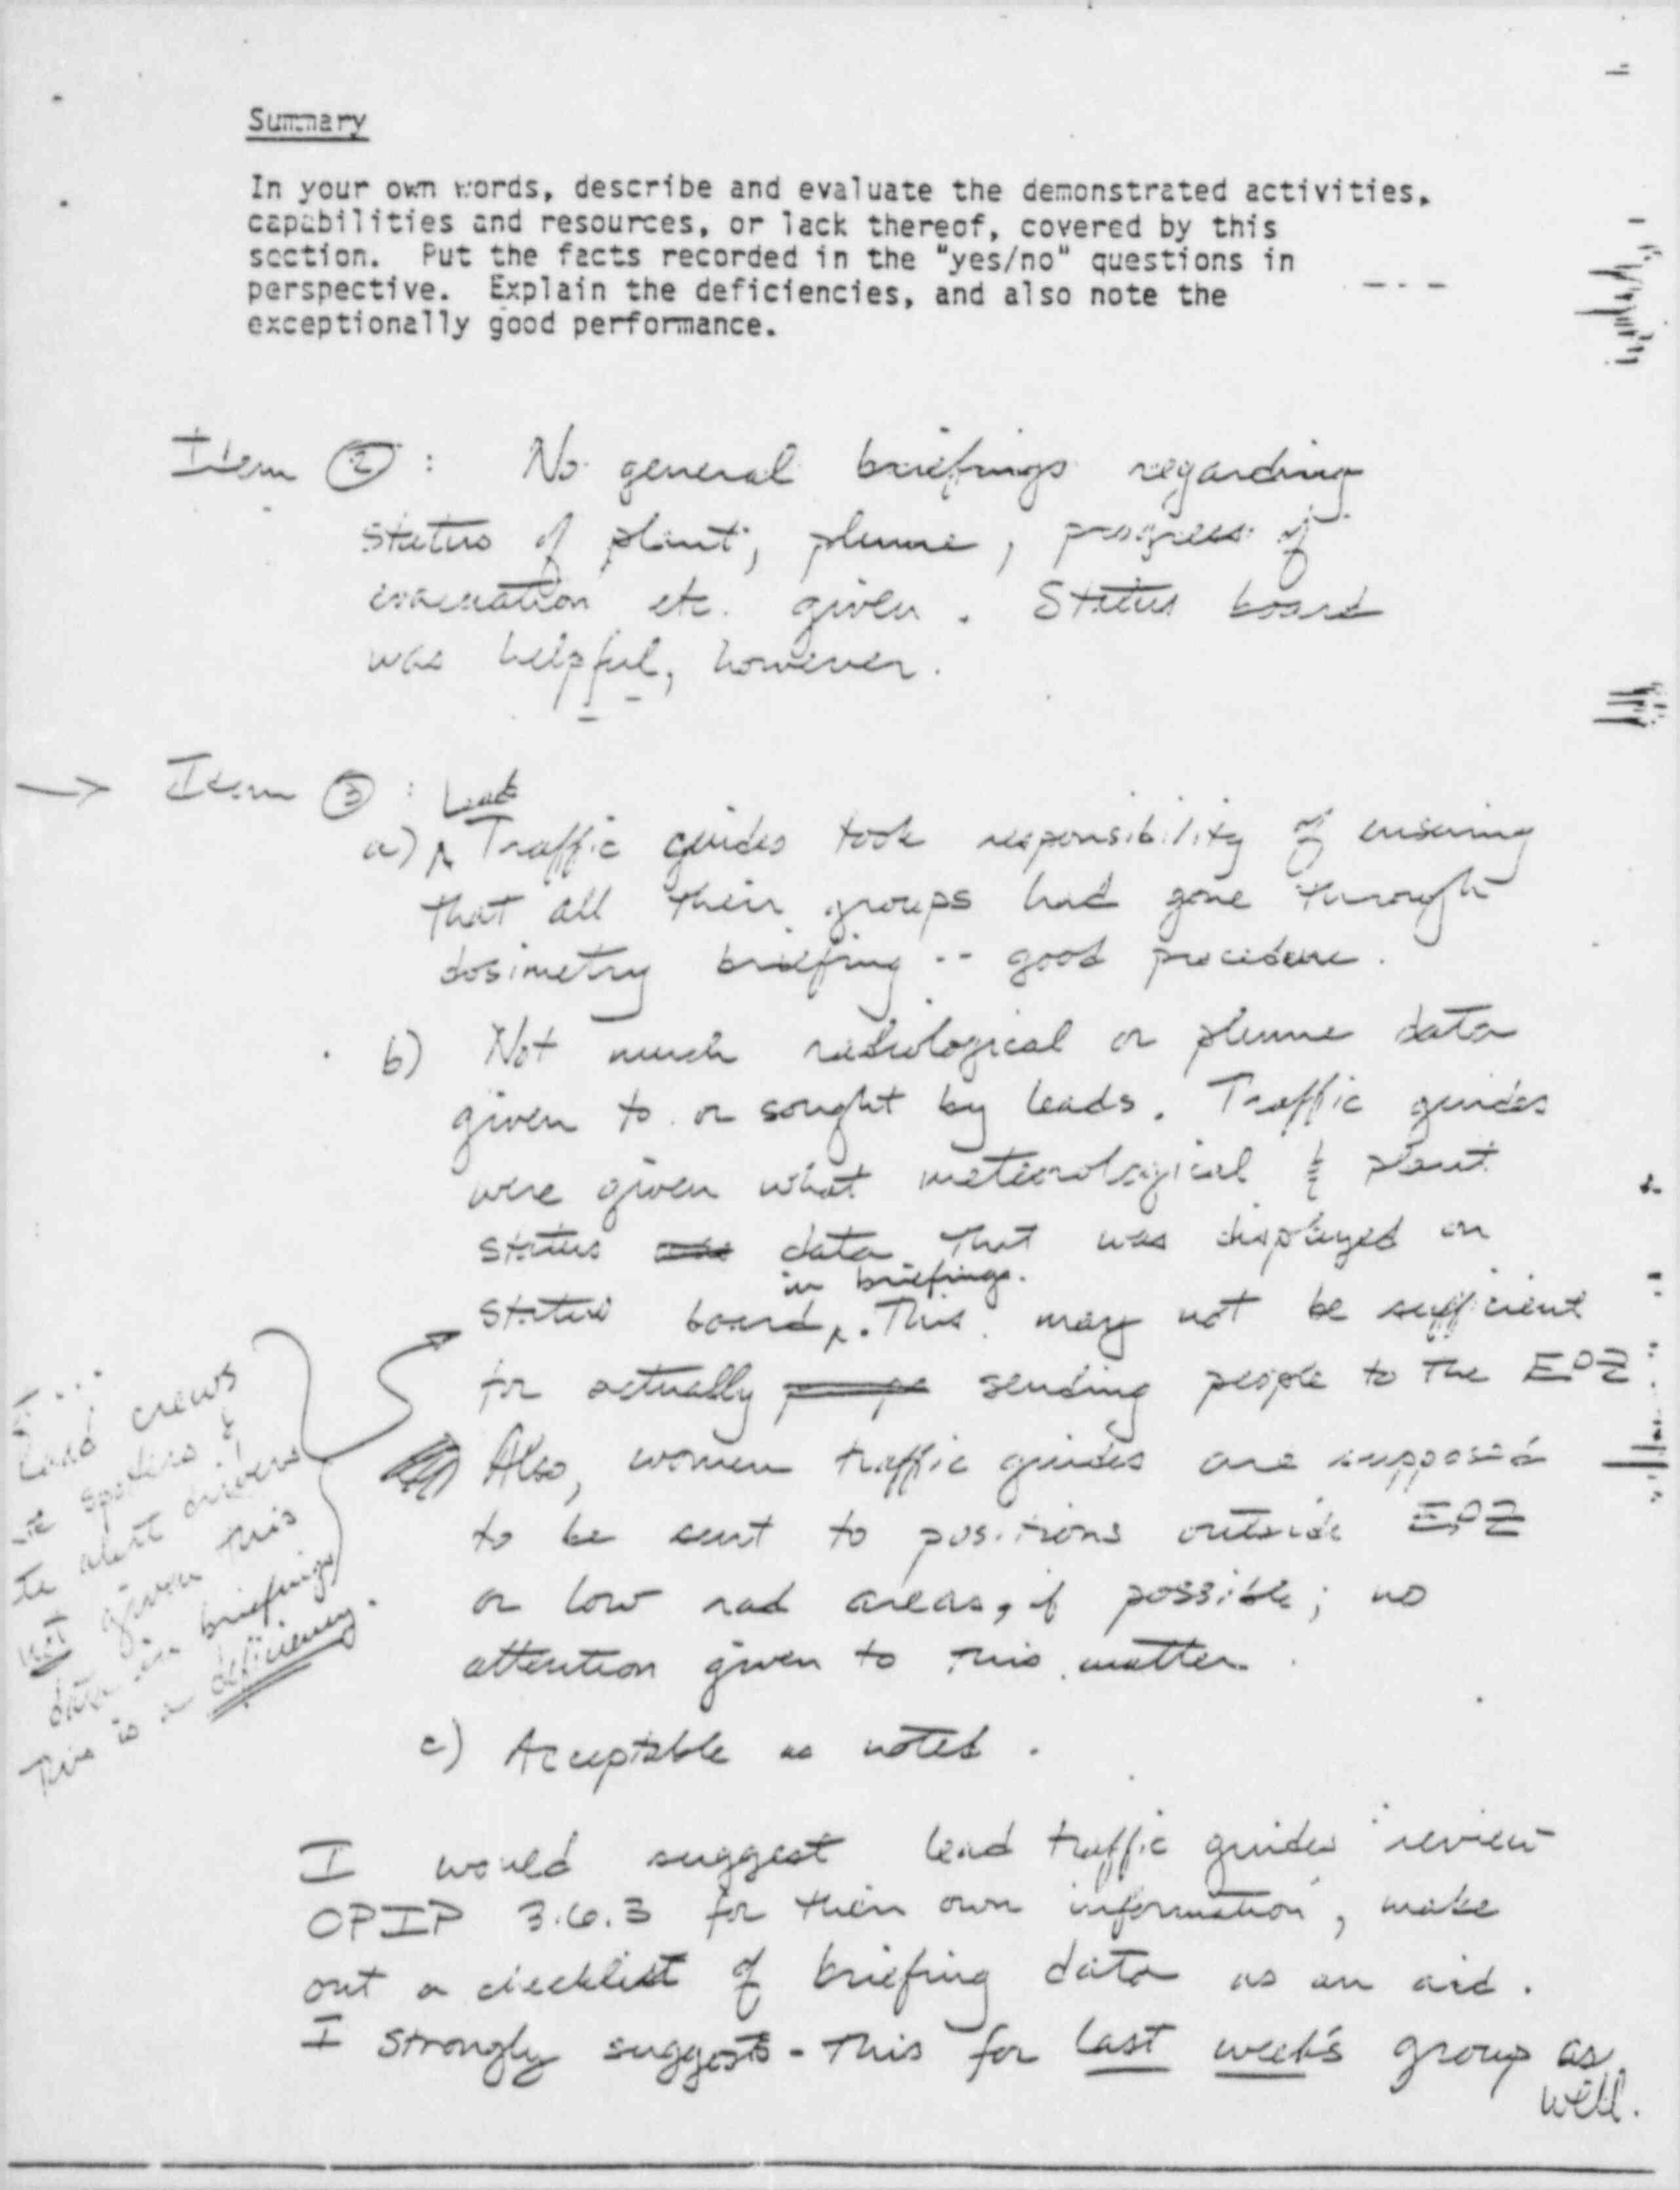 Summary
In your own words, describe and evaluate the demonstrated activities,
capabilities and resources, or lack thereof, covered by this
section. Put the facts recorded in the "yes/no" questions in
perspective. Explain the deficiencies, and also note the
exceptionally good performance.
Item ②: No general briefings regarding
status of plant, plume, progress of
evacuation etc. given. Status board
was helpful, however.
→ Item ③:
Lead
a) Traffic guides took responsibility of ensuring
that all their groups had gone through
dosimetry briefing -- good procedure.
b) Not much radiological or plume data
given to or sought by leads. Traffic guides
were given what meteorological & plant
status data that was displayed on
in briefings.
status board. This may not be sufficient
for actually sending people to the EPZ
Also, women traffic guides are supposed
to be sent to positions outside EPZ
or low rad areas, if possible; no
attention given to this matter.
road crews
spotters &
alert drivers
not given this
data in briefings
This is a deficiency.
c) Acceptable as noted.
I would suggest lead traffic guides review
OPIP 3.6.3 for their own information, make
out a checklist of briefing data as an aid.
I strongly suggest - this for last week's group as
well.